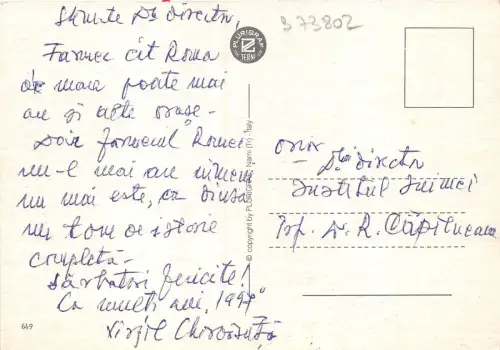 Stimate Dle Director,
Farmec cît Roma
de mare poate mai
au și alte orașe -
Doar farmecul Romei
nu-l mai are nimeni
nu mai este, ca dînsa
un tom de istorie
completă -
Sărbători fericite!
Ca mulți ani, "1997"
Virgil
B 73802
PLURIGRAF
TERNI
© copyright by PLURIGRAF, Narni (Tr) - Italy
Onor
Dle Director
Institutul Inimii
Prf. dr. R. Căpîlneanu
649